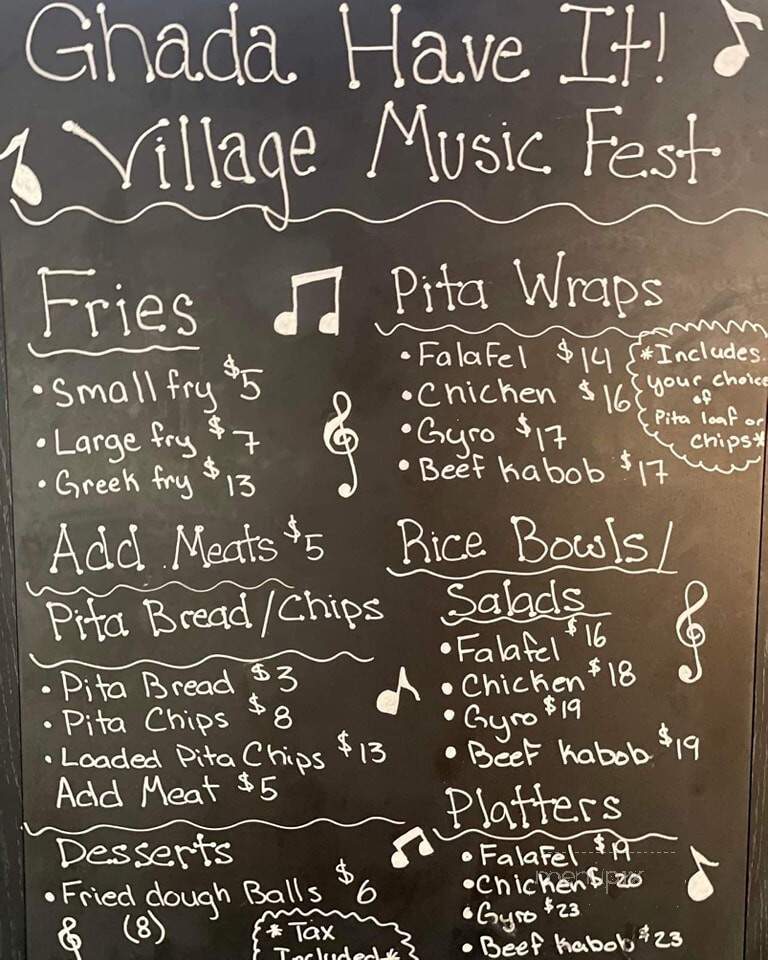 Ghada Have It!
Village Music Fest
Fries
• Small fry $5
• Large fry $7
• Greek fry $13
Add Meats $5
Pita Bread/Chips
• Pita Bread $3
• Pita Chips $8
• Loaded Pita Chips $13
Add Meat $5
Desserts
• Fried dough Balls $6
(8)
* Tax
Included *
Pita Wraps
• Falafel $14
• Chicken $16
• Gyro $17
• Beef kabob $17
*Includes
your choice
of
Pita loaf or
chips*
Rice Bowls/
Salads
• Falafel $16
• Chicken $18
• Gyro $19
• Beef kabob $19
Platters
• Falafel $19
• Chicken $20
• Gyro $23
• Beef kabob $23